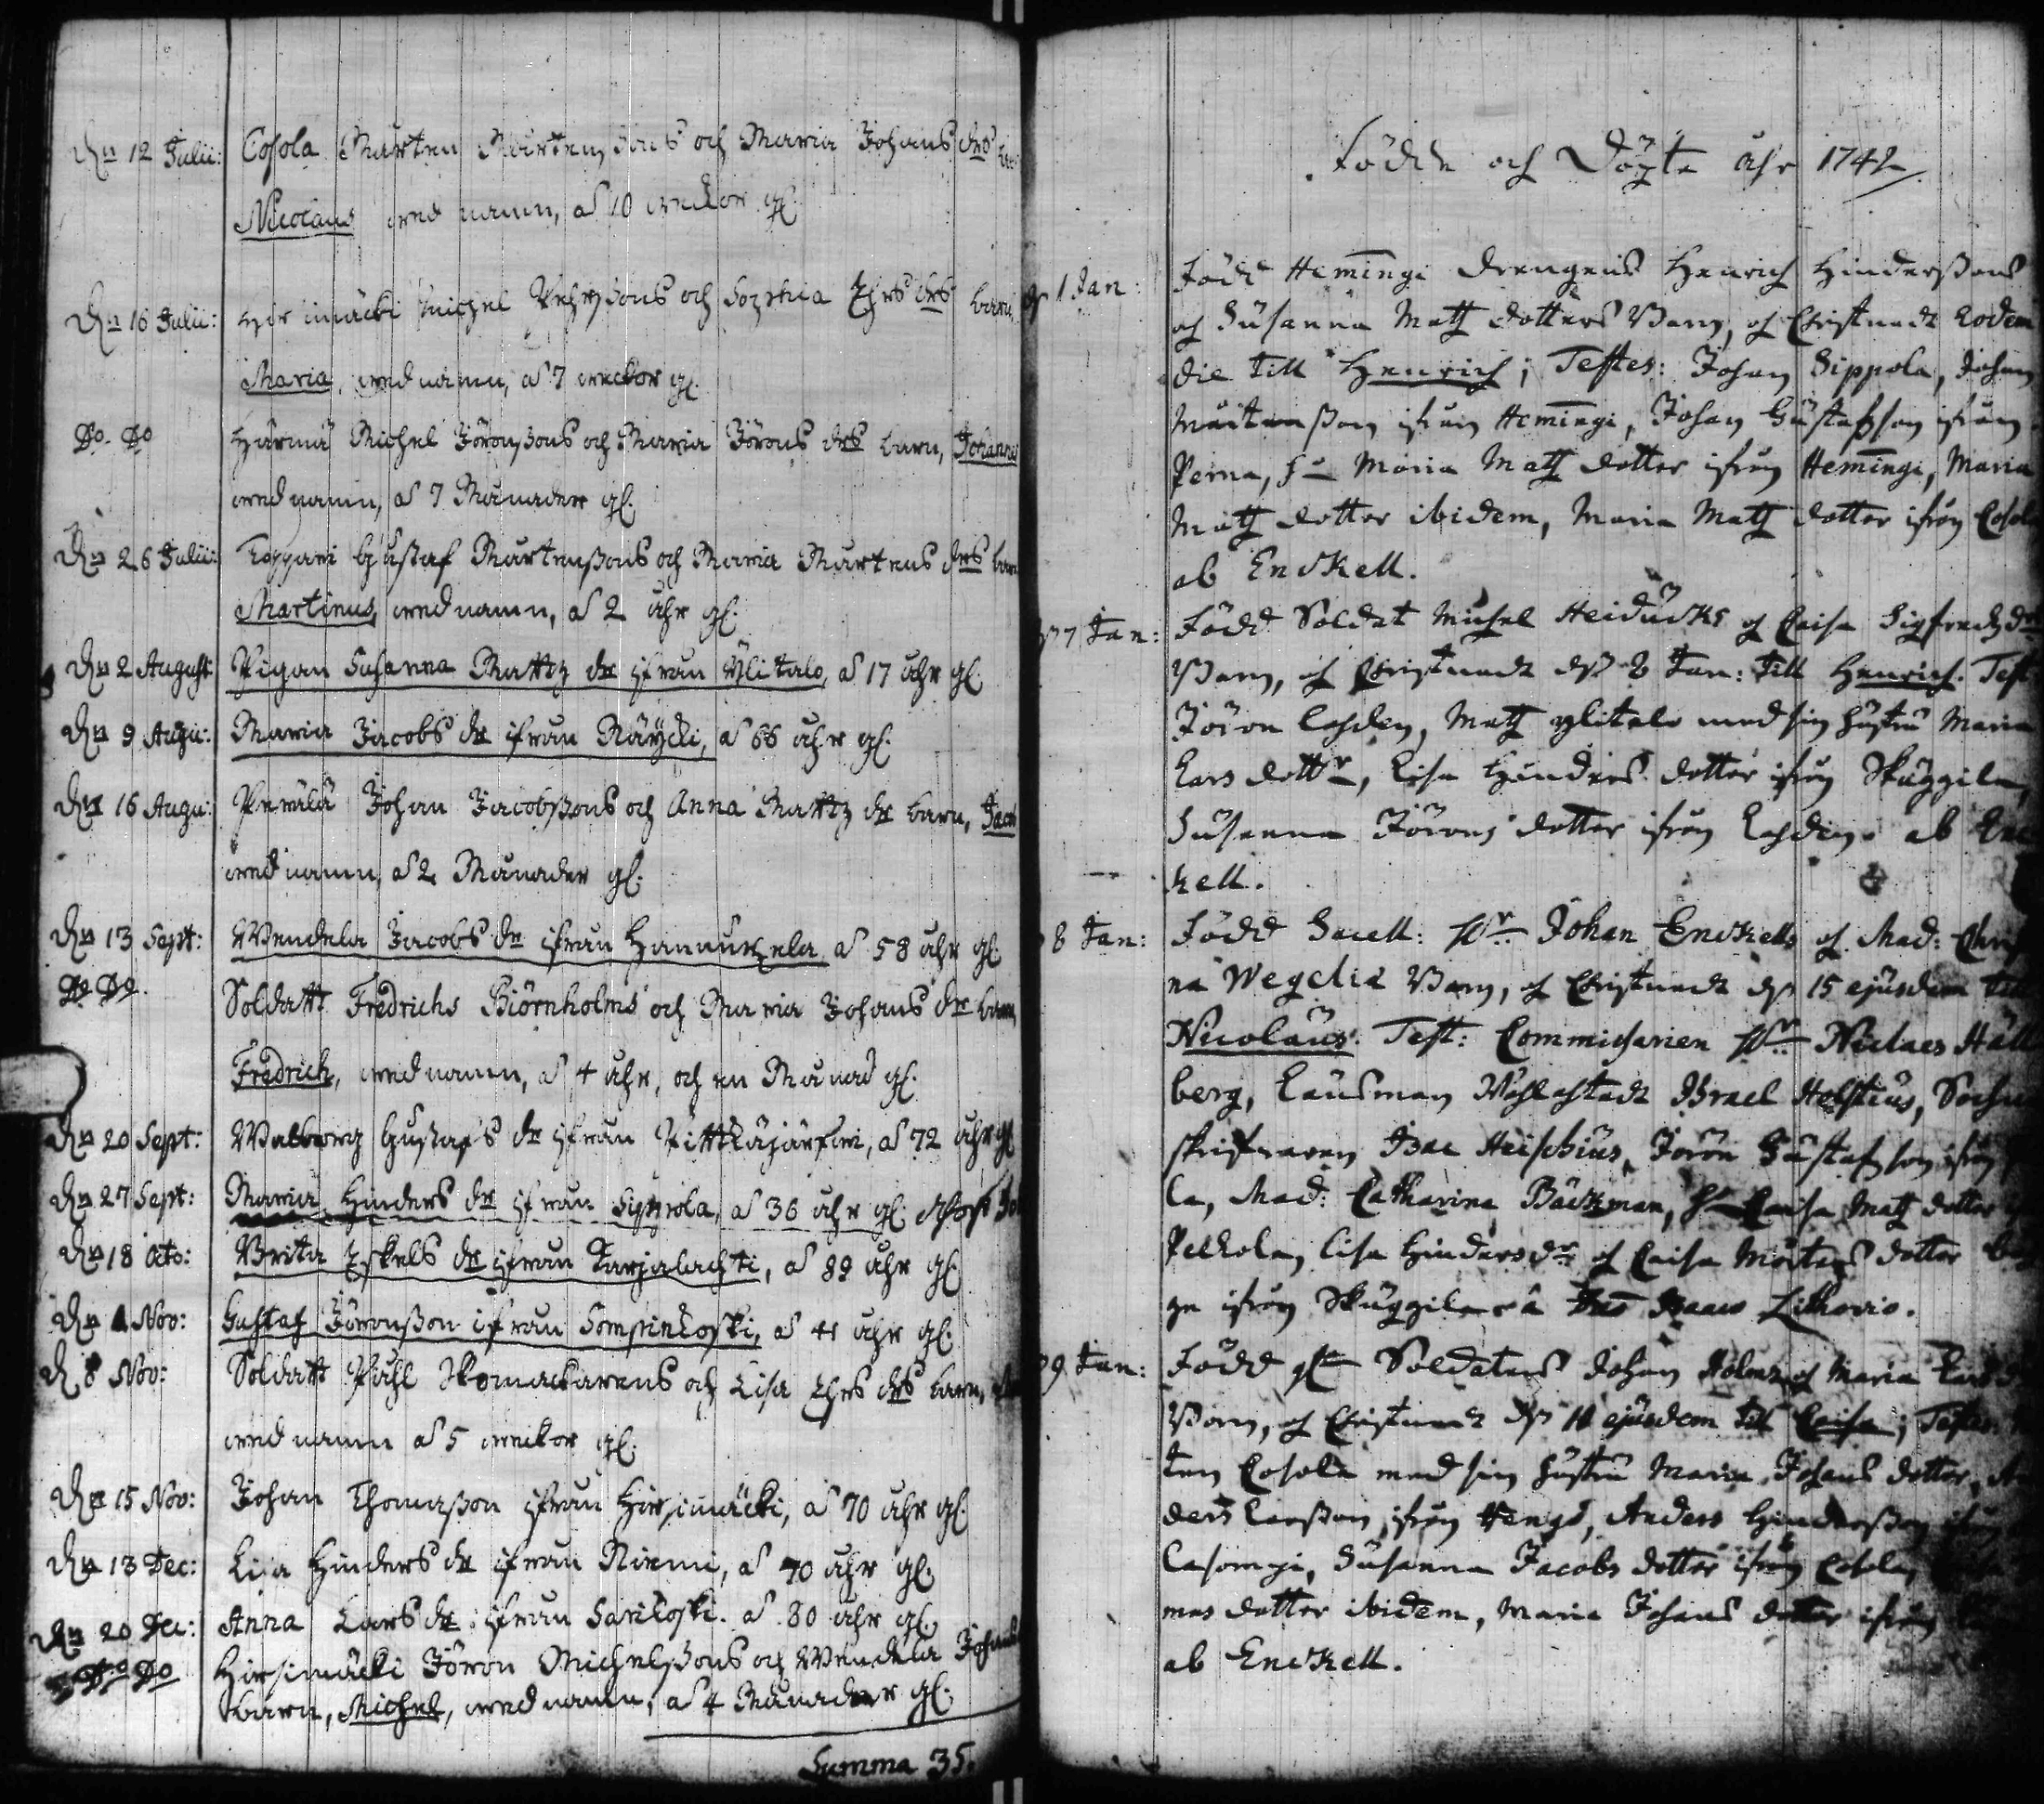 Dn 12 Julii: Cosola Mårten Mårtenssons och Maria Johans drs
Nicolaus wed namn, a 10 weckor gl.
Dn 16 Julii: Hirsimäcki Michel Pehrsons och Sophia Ehrs drs barn,
Maria, wed namn, a 7 weckor gl.
Do. Do Härmä Michel Jöronssons och Maria Jörons drs barn, Johannes
wed namn, a 7 Månader gl.
Dn 26 Julii: Toppari Gustaf Mårtenssons och Maria Mårtens drs barn
Martinus, wed namn, a 2 åhr gl.
Dn 2 August: Pigan Susanna Mattz dr ifrån Ylitalo, a 17 åhr gl.
Dn 9 Augu: Maria Jacobs dr ifrån Räycki, a 66 åhr gl.
Dn 16 Augu: Perälä Johan Jacobssons och Anna Mattz dr barn, Jacob
wed namn, a 2 Månader gl.
Dn 13 Sept: Wendela Jacobs dr ifrån Hannukzela a 58 åhr gl
Do Do. Soldatt Fredrichs Biörnholms och Maria Johans dr barn,
Fredrich, wed namn, a 4 åhr, och en Månad gl.
Dn 20 Sept: Walborg Gustafs dr ifrån Pittkäjärfwi, a 72 åhr gl
Dn 27 Sept: Maria Hinders dr ifrån Sippola, a 36 åhr gl.
Dn 18 Octo: Brita Eskels dr ifrån Karjalachti, a 89 åhr gl
Dn 1 Nov: Gustaf Jöronsson ifrån Sompinkoski, a 41 åhr gl.
D 8 Nov: Soldatt Påhl Skomackarens och Lisa Ehrs drs barn,
wed namn a 5 weckor gl.
Dn 15 Nov: Johan Thomasson ifrån Hirsimäcki, a 70 åhr gl.
Dn 13 Dec: Lisa Hinders dr ifrån Niemi, a 70 åhr gl.
Dn 20 Dec: Anna Lars dr ifrån Sarikoski. a 80 åhr gl.
Do Do Hirsimäcki Jöron Michelssons och Wendela Johans
barn, Michel, wed namn, a 4 Månader gl.
Summa 35.
Födde och Döpte åhr 1742
1 Jan: Född Hemingi Drengens Henrich Hinderssons
och Susanna Matts dotters Barn, och Christnadt Eodem
die till Henrich; Testes: Johan Sippola, Johan
Mårtensson ifrån Hemingi, Johan Gustafsson ifrån
Perna, hu Maria Matts dotter ifrån Hemingi, Maria
Matts dotter ibidem, Maria Matts dotter ifrån Cosola
ab Enckell.
7 Jan: Född Soldat Michel Heiducks och Caisa Sigfreds dr
Barn, och Christnadt d. 8 Jan: till Henrich. Test
Jöron Cahden, Matts Ylitalo med sin hustru Maria
Lars dottr, Lisa Hindrs dotter ifrån Skuggila,
Susanna Jörons dotter ifrån Cahden. ab Enc
kell.
8 Jan: Född Sacell: Hr Johan Enckells och Mad: Chris
na Wegelia Barn, och Christnadt d. 15 ejusdem till
Nicolaus. Test: Commissarien Hr Niclaes Häll
berg, Länsman Wählachtadt Israel Helstius, Sochn
skrifwaren Isac Heischius, Jörön Gustafsson ifrån
la, Mad: Catharina Bäckman, hu Caisa Matts dotter
Pelkola, Lisa Hinders dr och Caisa Mårtens dotter
ge ifrån Skuggila a Dno Isaaco Lithovio.
9 Jan: Född Soldatens Johan Holms och Maria Lars d
Barn, och Christnadt d. 11 ejusdem till Caisa; Testes:
ten Cosola med sin hustru Maria Johans dotter, An
ders Larsson ifrån Hengo, Anders Hindersson ifrån
Casomgi, Susanna Jacobs dotter ifrån Cosola,
mas dotter ibidem, Maria Johans dotter ifrån
ab Enckell.